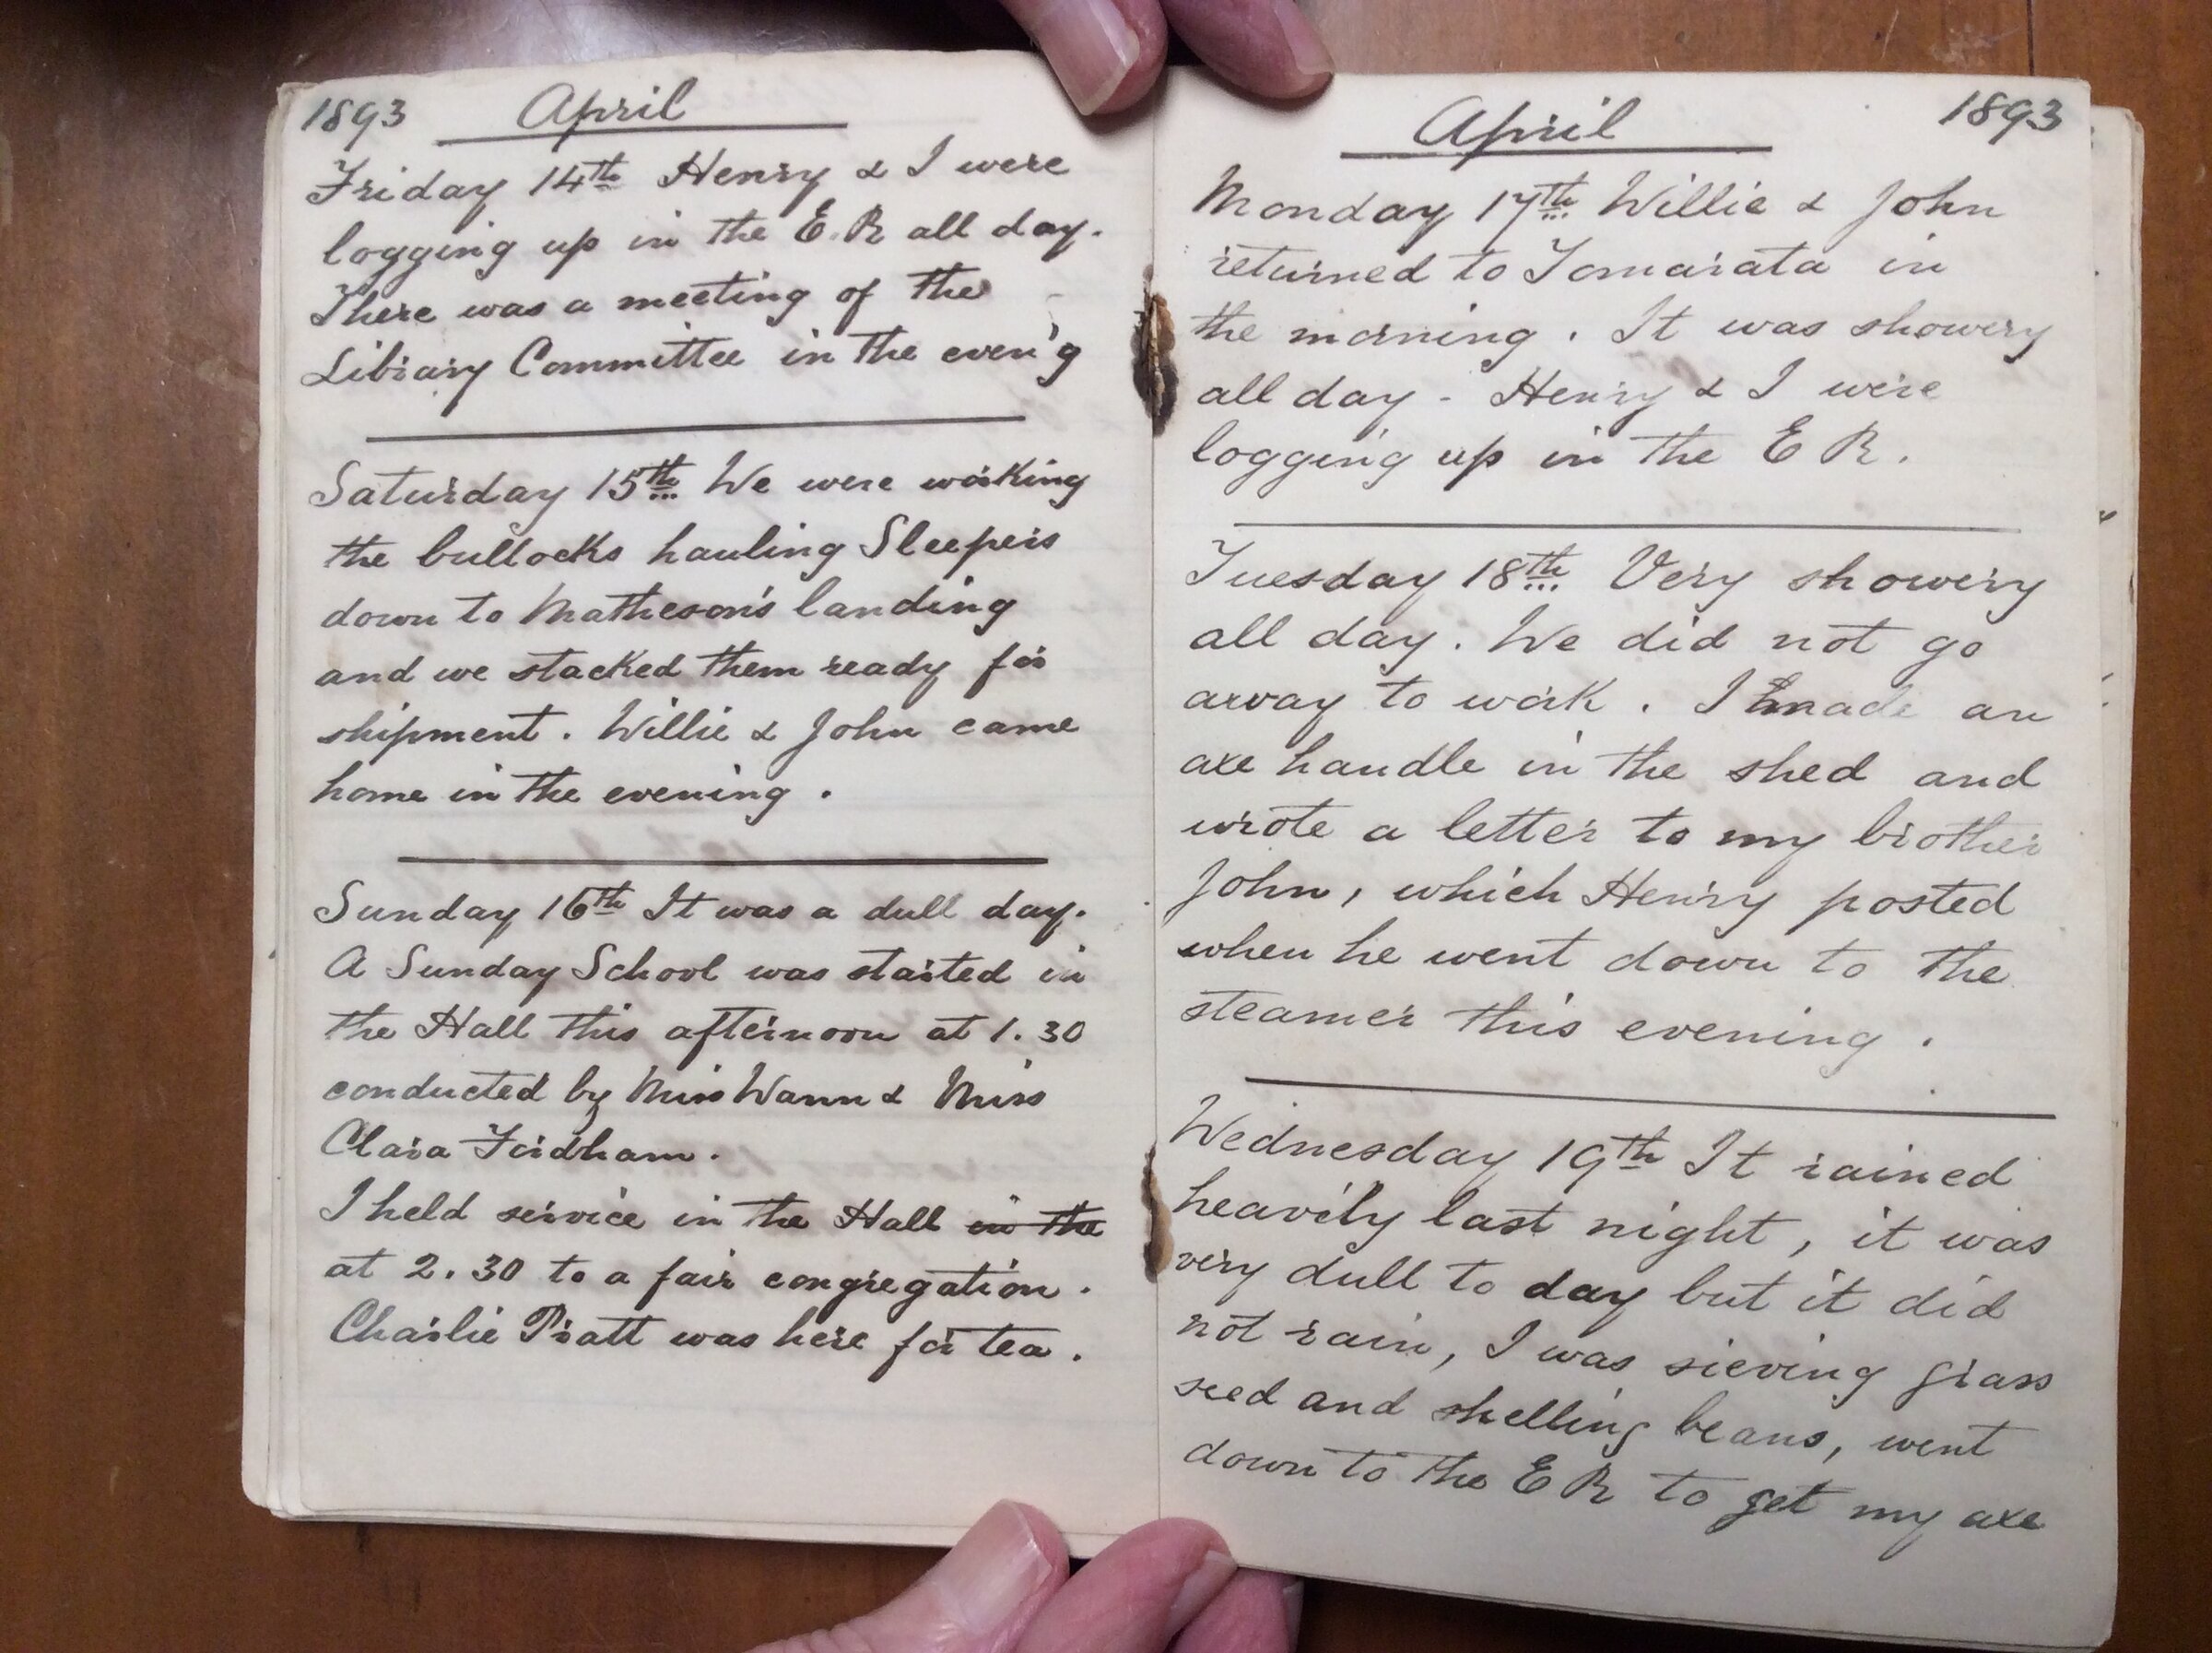 1893 April
Friday 14th Henry & I were
logging up in the E. R all day.
There was a meeting of the
Library Committee in the even'g
Saturday 15th We were working
the bullocks hauling Sleepers
down to Matheson's landing
and we stacked them ready for
shipment. Willie & John came
home in the evening.
Sunday 16th It was a dull day.
A Sunday School was started in
the Hall this afternoon at 1.30
conducted by Miss Wann & Miss
Clara Fordham.
I held service in the Hall in the
at 2.30 to a fair congregation.
Charlie Pratt was here for tea.
April 1893
Monday 17th Willie & John
returned to Tomarata in
the morning. It was showery
all day - Henry & I were
logging up in the E R.
Tuesday 18th Very showery
all day. We did not go
away to work. I made an
axe handle in the shed and
wrote a letter to my brother
John, which Henry posted
when he went down to the
steamer this evening.
Wednesday 19th It rained
heavily last night, it was
very dull to day but it did
not rain, I was sieving grass
seed and shelling beans, went
down to the E R to get my axe